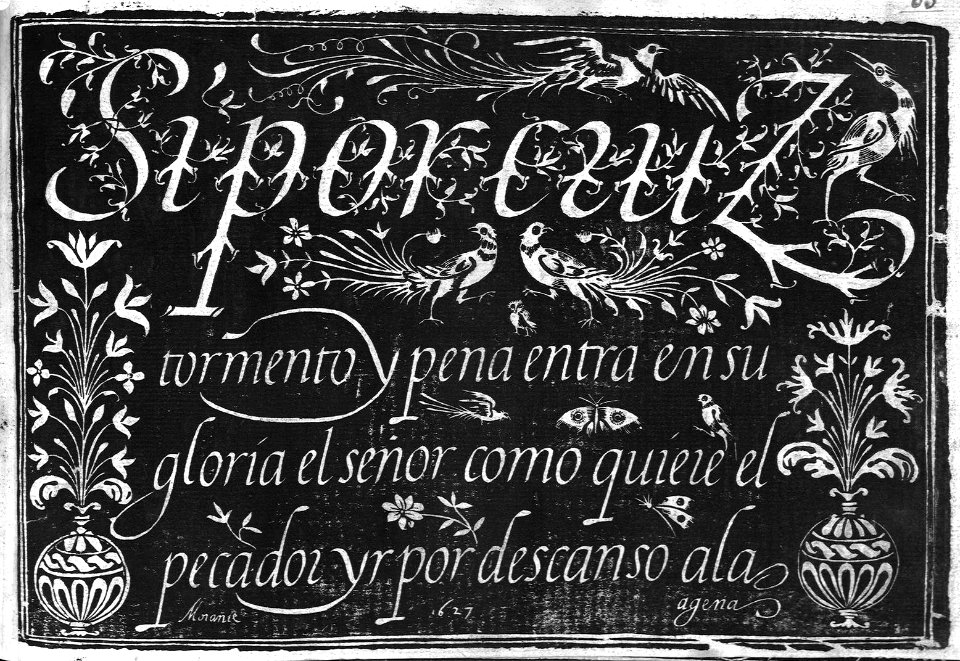 Si por cruz
tormento y pena entra en su
gloria el señor como quiere el
pecador yr por descanso ala
agena
Morante 1627